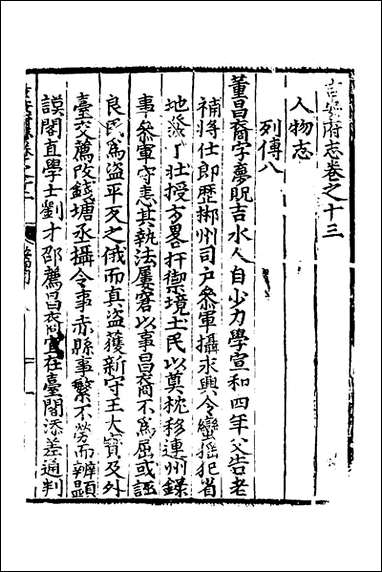 吉安府志卷之十三
人物志
列傳八
董昌裔字夢貺吉水人自少力學宣和四年父告老
補將仕郎歷郴州司户叅軍攝永興令蠻猺犯省
地發丁壯授方畧扞禦境土民以奠枕移連州錄
事叅軍守恚其執法屢窘以事昌裔不爲屈或誣
良民爲盜平反之俄而真盜獲新守王大寶及外
臺交薦改錢塘丞攝令事赤縣事繁不勞而辨顯
謨閣直學士劉才邵薦昌裔宜在臺閣添差通判